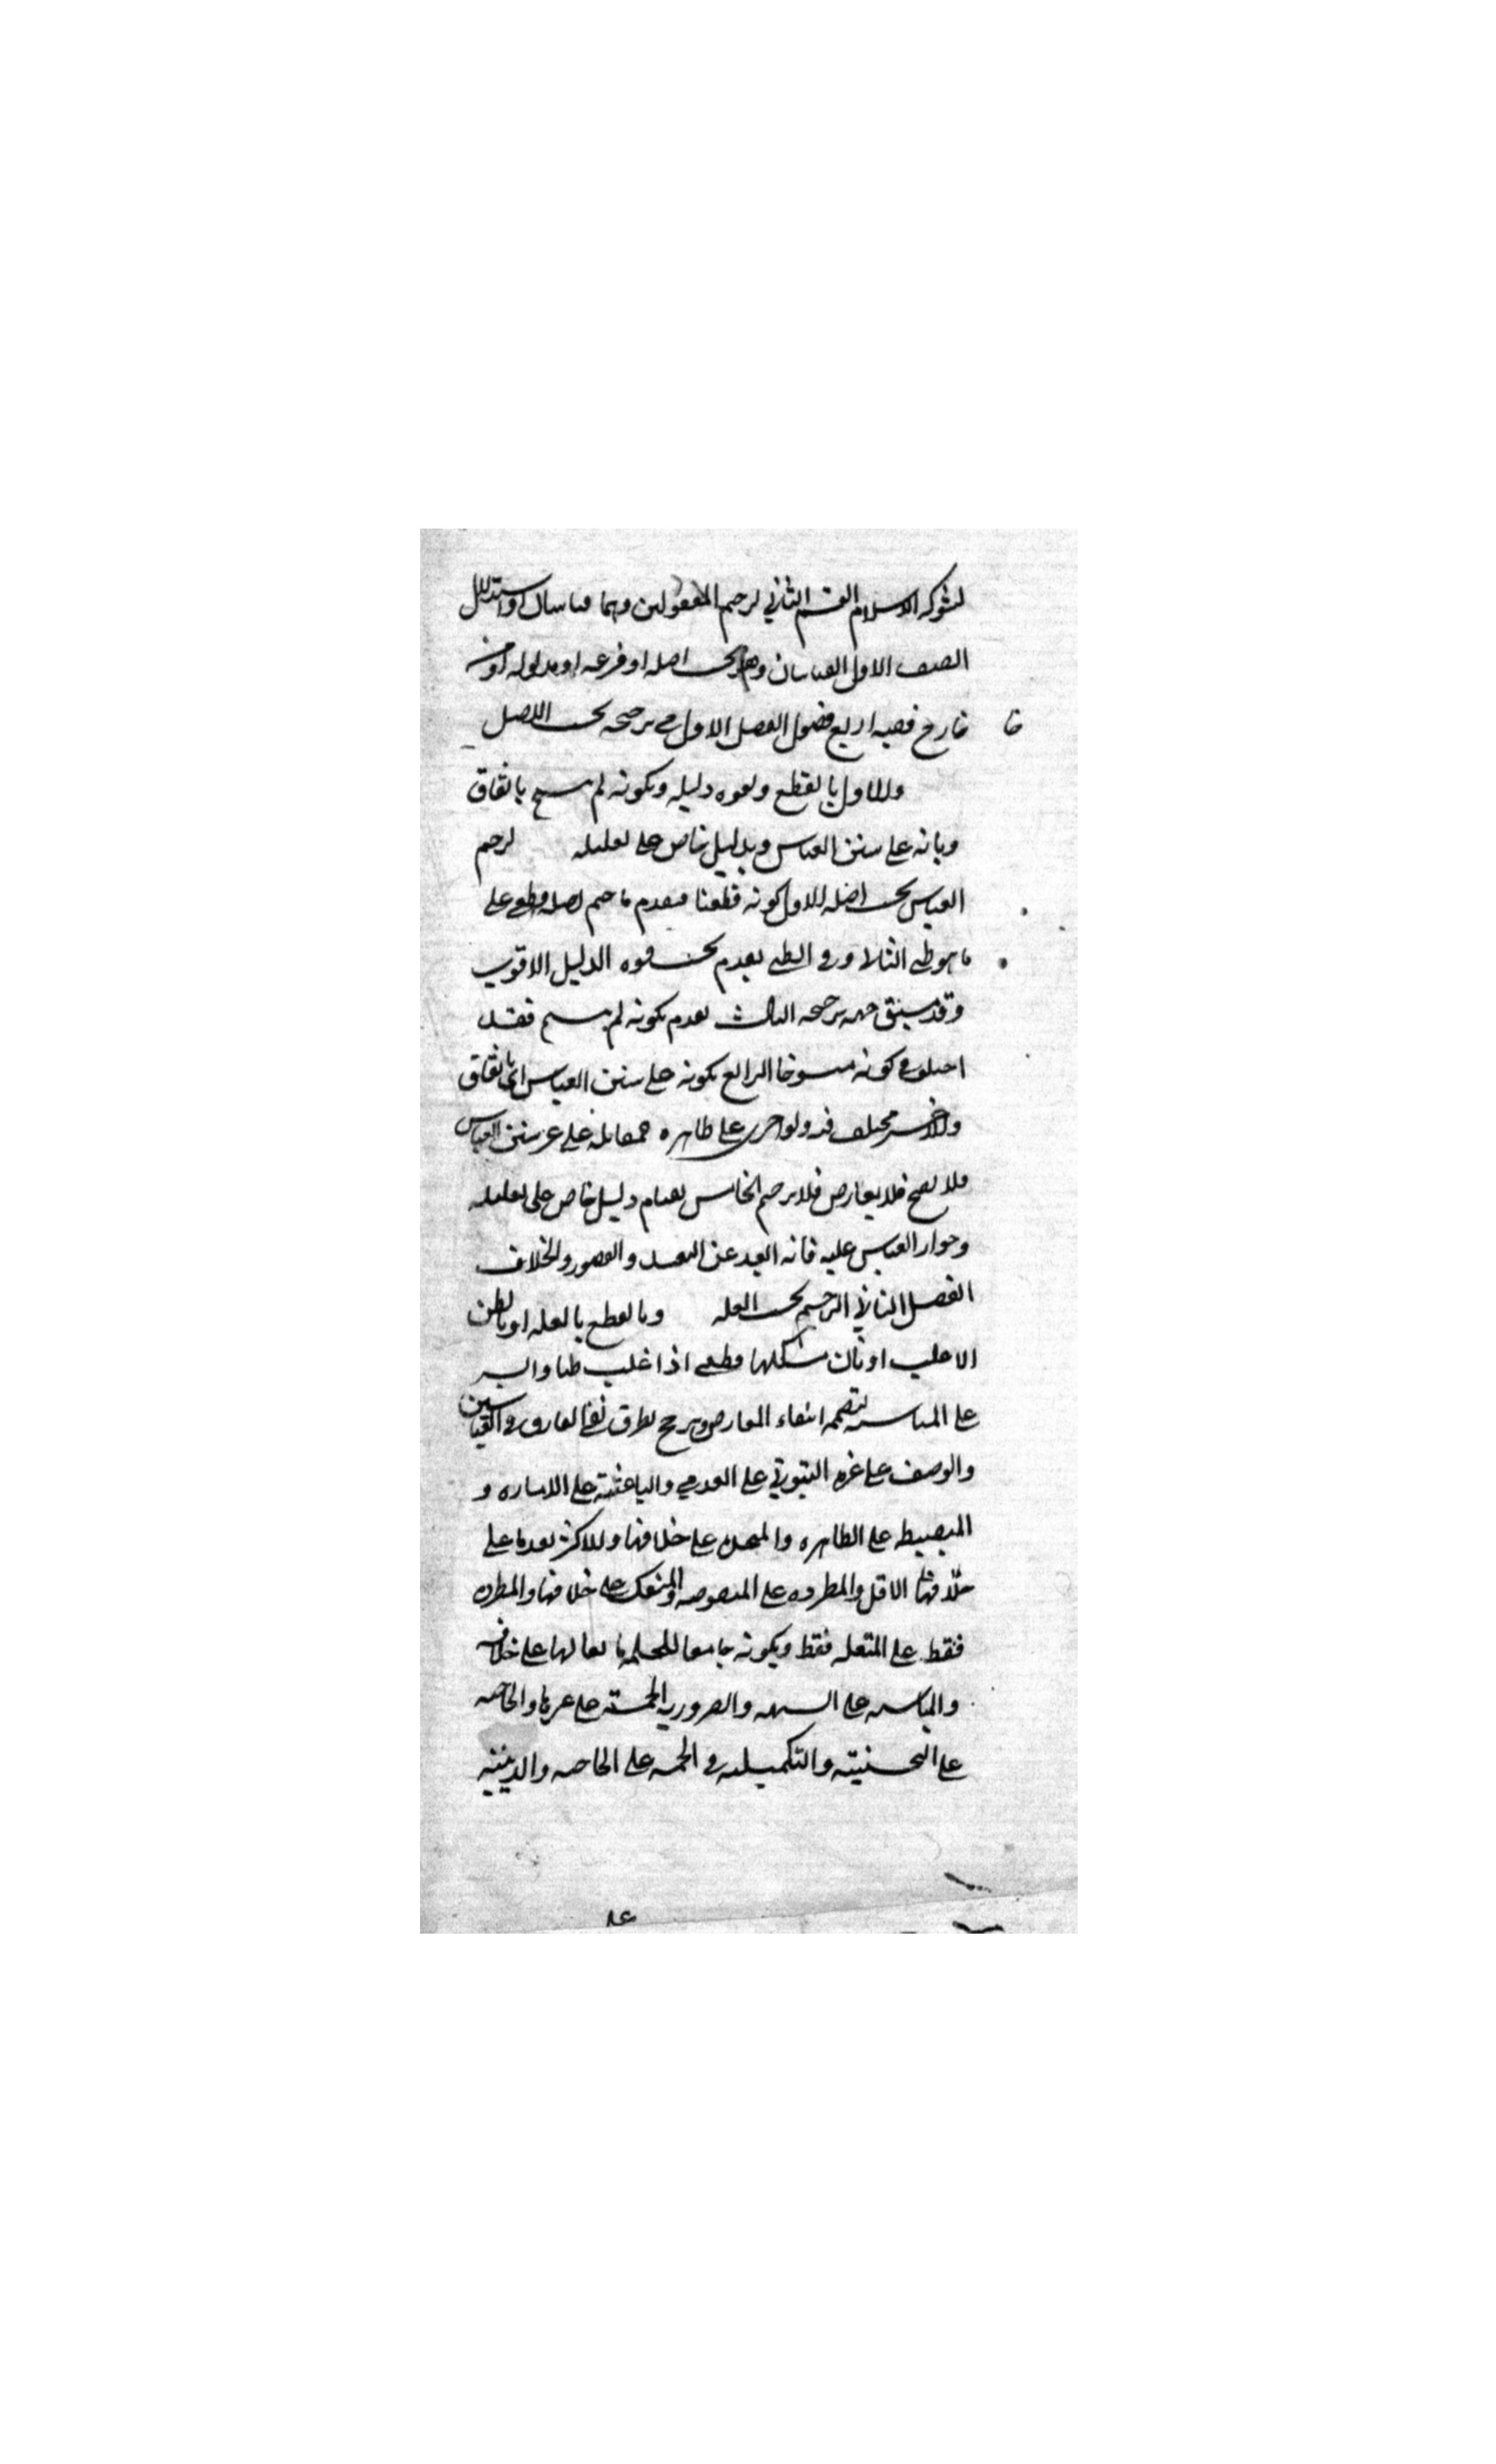 لشوكه الاسلام القسم الثاني لرحم المعقولين وهما قياسان او استدلال
الصنف الاول القياسان وهو بحسب اصله او فرعه او مدلوله او من
خارج ففيه اربع فصول الفصل الاول في ترجيحه بحسب الاصل
خا
والاول بالقطع وبقوه دليله وبكونه لم ينسخ باتفاق
وبانه على سنن القياس وبدليل خاص على تعليله ترجيح
القياس بحسب اصله الاول كونه قطعيا فيقدم ما حكم اصله قطعي على
ما هو ظني الثاني وفي الظني يقدم بحسب قوه الدليل الاقوى
وقد سبق جهه ترجيحه الثالث يقدم بكونه لم ينسخ فقد
اختلف في كونه منسوخا الرابع بكونه على سنن القياس اي باتفاق
والاخر مختلف فيه ولو جرى على ظاهره فمقابله على غير سنن القياس
فلا يصح فلا يعارض فلا ترجيح الخامس بقيام دليل خاص على تعليله
وجواز القياس عليه فانه ابعد عن التعبد والقصور والخلاف
الفصل الثاني الترجيح بحسب العله وبالقطع بالعله او بالظن
الاغلب او بان مسلكها قطعي اذا غلب ظنا والسبر
على المناسبه لتضمنه انتفاء المعارض ويرجح بطرق نفي الفارق في القياسين
والوصف على غيره الثبوتي على العدمي والباعثية على الاماره و
المنضبطه على الظاهره والمتحده على خلافها وللاكثر تعديا على
خلافها الاقل والمطرده على المنقوصه والمنعكسه على خلافها والمطرده
فقط على المنعكسه فقط وبكونه جامعا للحكمه مانعا لها على خلافه
والمناسبه على الشبهيه والضروريه الخمسه على غيرها والحاجيه
على التحسينيه والتكميليه في الخمسه على الحاجيه والدينيه
على